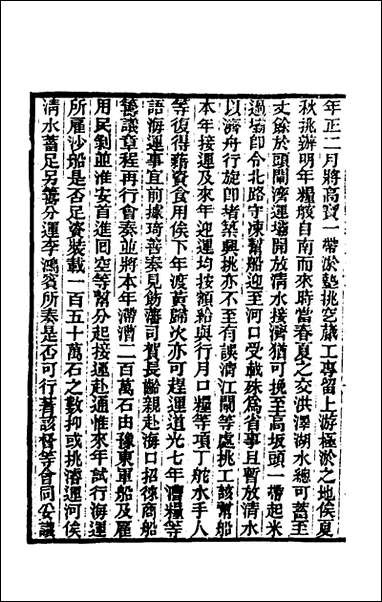 年正二月將高寶一帶淤墊挑空蕆工專留上游極淤之地俟夏
秋挑辦明年糧艘自南而來時當春夏之交洪澤湖水總可蓄至
丈餘於頭閘濟運壩開放清水接濟猶可挽至高坂頭一帶起米
過壩卽令北路守凍幫船迎至河口受載殊爲省事且暫放清水
以濟舟行旋卽堵築興挑亦不至有誤濟江閘等處挑工該幫船
本年接運及來年迎運均按額給與行月口糧等項丁舵水手人
等復得藉資食用俟下年渡黃歸次亦可趕運道光七年漕糧等
語海運事宜前據琦善奏見飭藩司賀長齡親赴海口招徠商船
籌議章程再行會奏並將本年滯漕二百萬石由豫東軍船及雇
用民剝並淮安首進回空等幫分起接運赴通惟來年試行海運
所雇沙船是否足資裝載一百五十萬石之數抑或挑濬運河俟
清水蓄足另籌分運李鴻賓所奏是否可行著該督等會同妥議